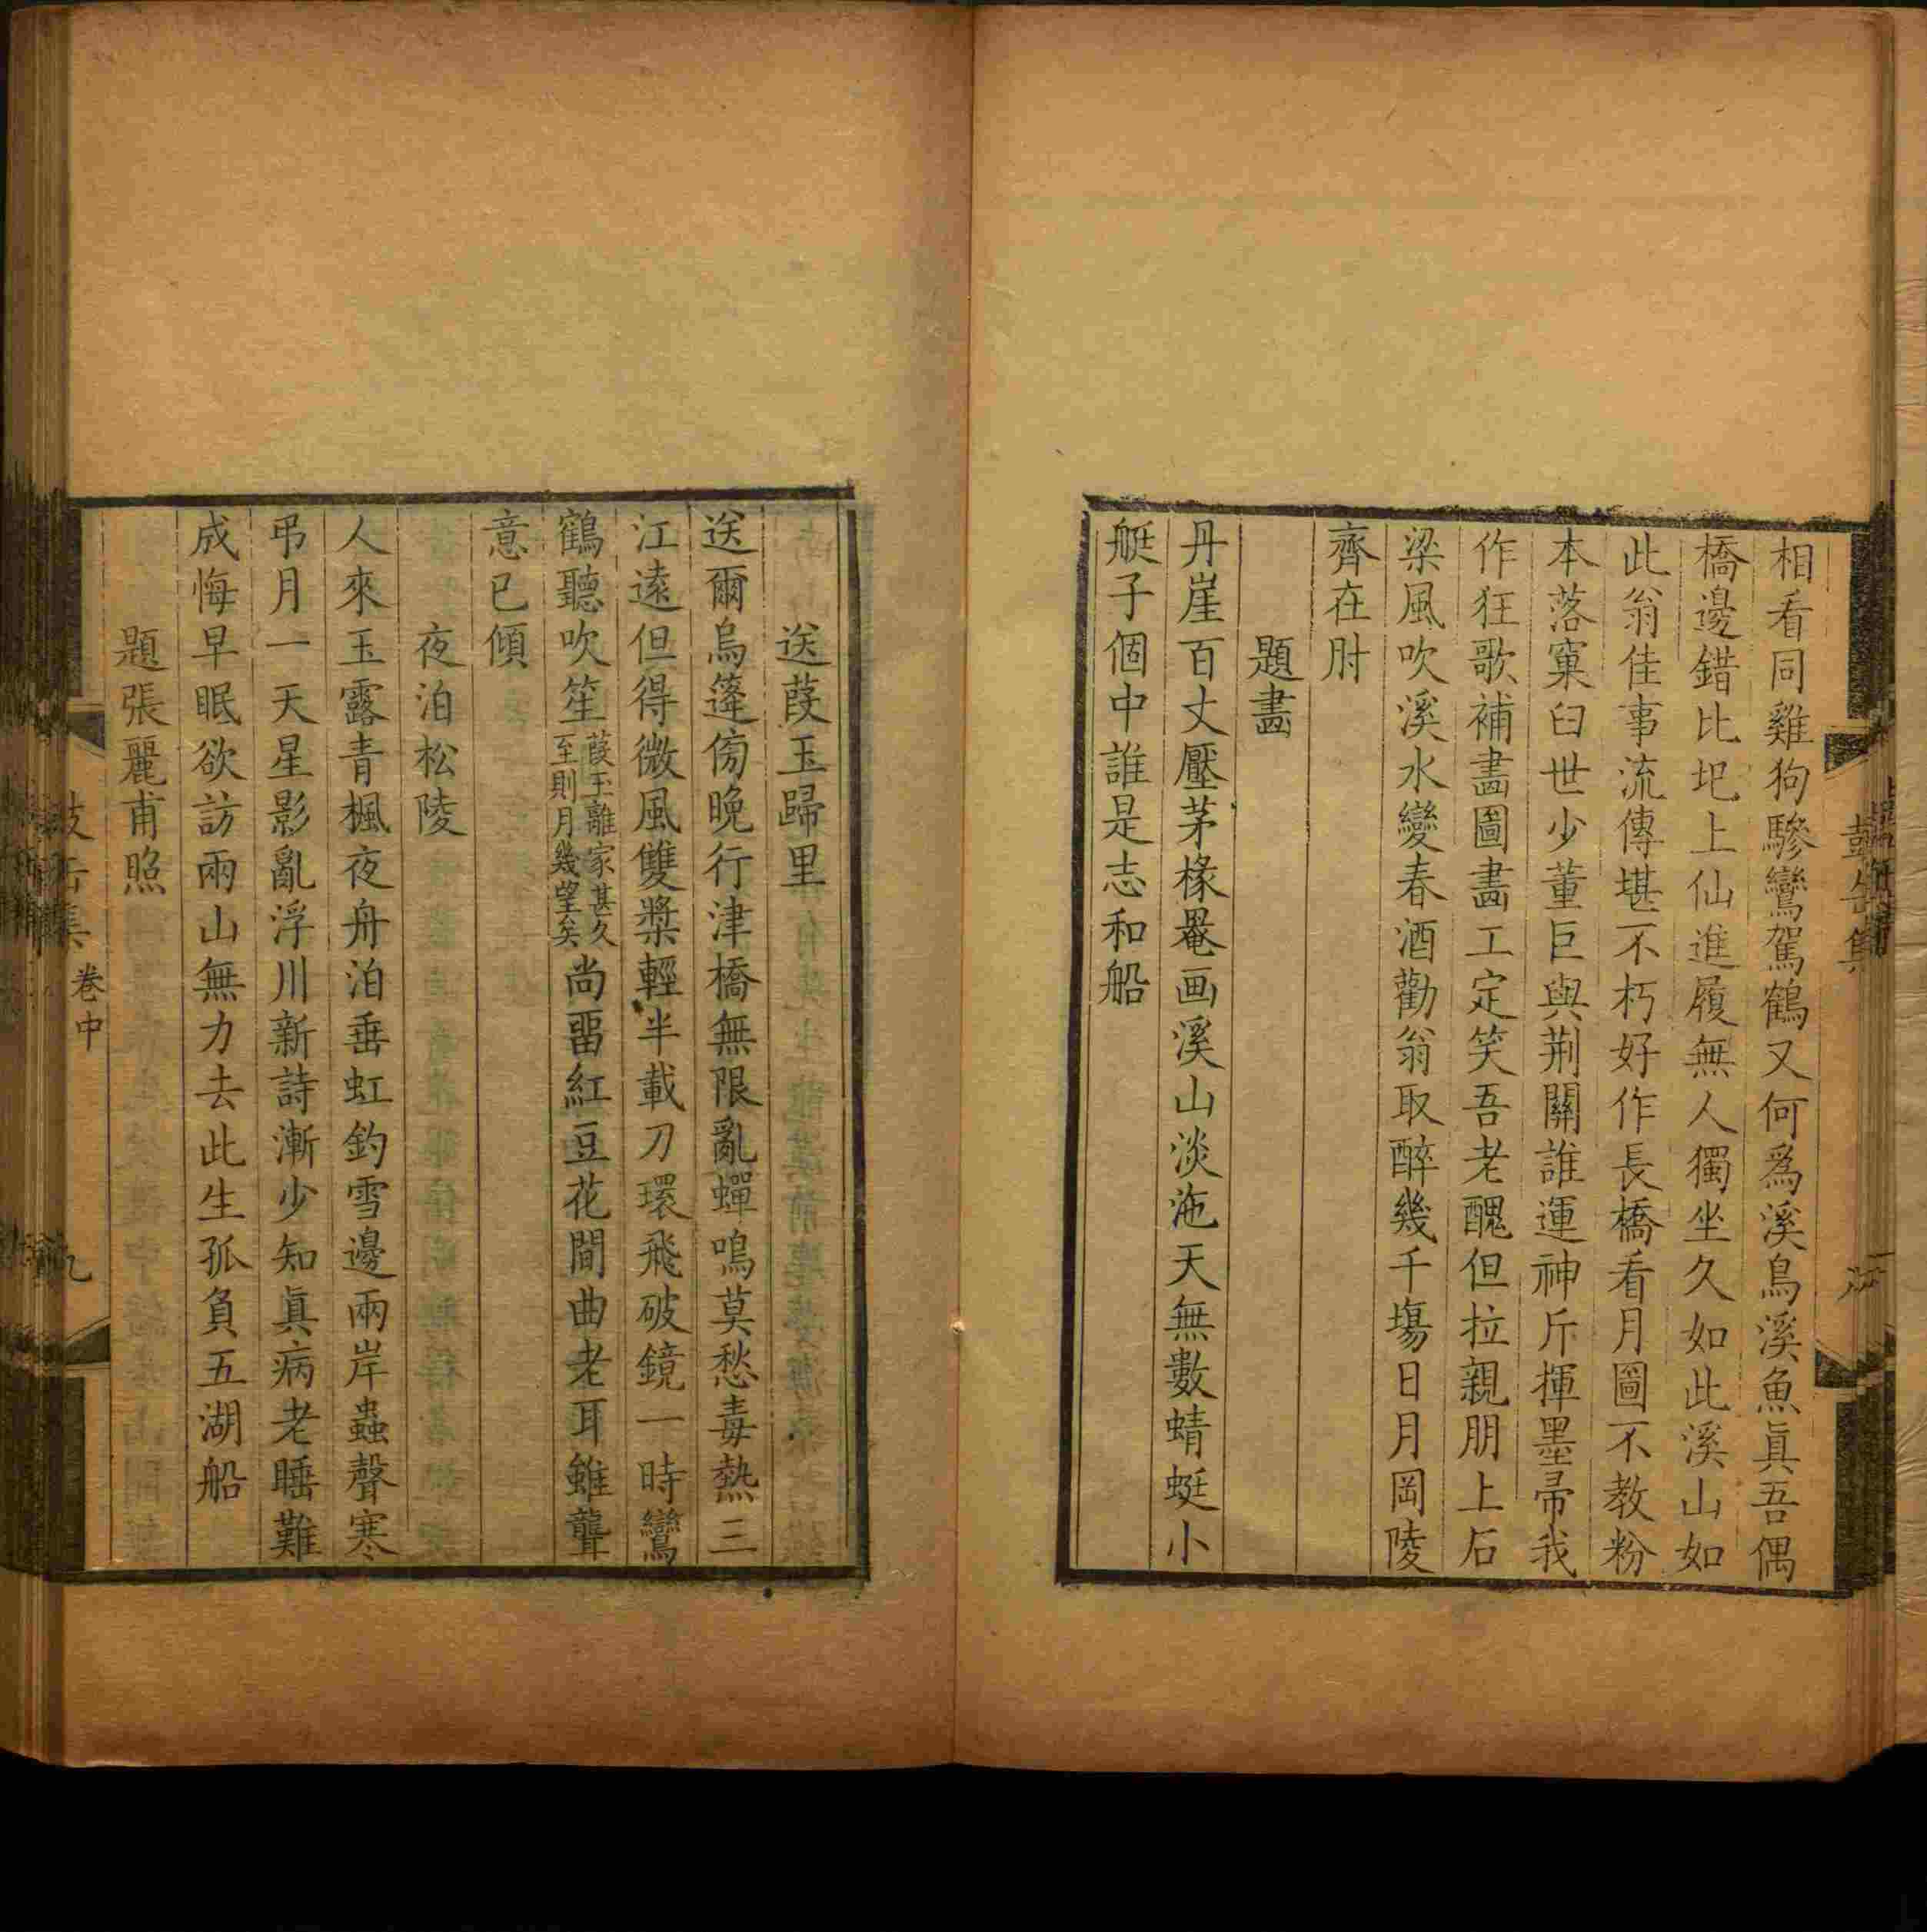 相看同雞狗驂鸞駕鶴又何爲溪鳥溪魚眞吾偶
橋邊錯比圯上仙進履無人獨坐久如此溪山如
此翁佳事流傳堪不朽好作長橋看月圖不教粉
本落窠臼世少董巨與荆關誰運神斤揮墨帚我
作狂歌補畵圖畵工定笑吾老醜但拉親朋上后
梁風吹溪水變春酒勸翁取醉幾千塲日月岡陵
齊在肘
題畵
丹崖百丈壓茅椽罨画溪山淡沲天無數蜻蜓小
艇子個中誰是志和船
送葭玉歸里
送爾烏篷傍晚行津橋無限亂蟬鳴莫愁毒熱三
江遠但得微風雙槳輕半載刀環飛破鏡一時鸞
鶴聽吹笙葭玉離家甚久至則月幾望矣尚畱紅豆花間曲老耳雖聾
意已傾
夜泊松陵
人來玉露青楓夜舟泊垂虹釣雪邊兩岸蟲聲寒
弔月一天星影亂浮川新詩漸少知眞病老睡難
成悔早眠欲訪兩山無力去此生孤負五湖船
題張麗甫照
卷中
九